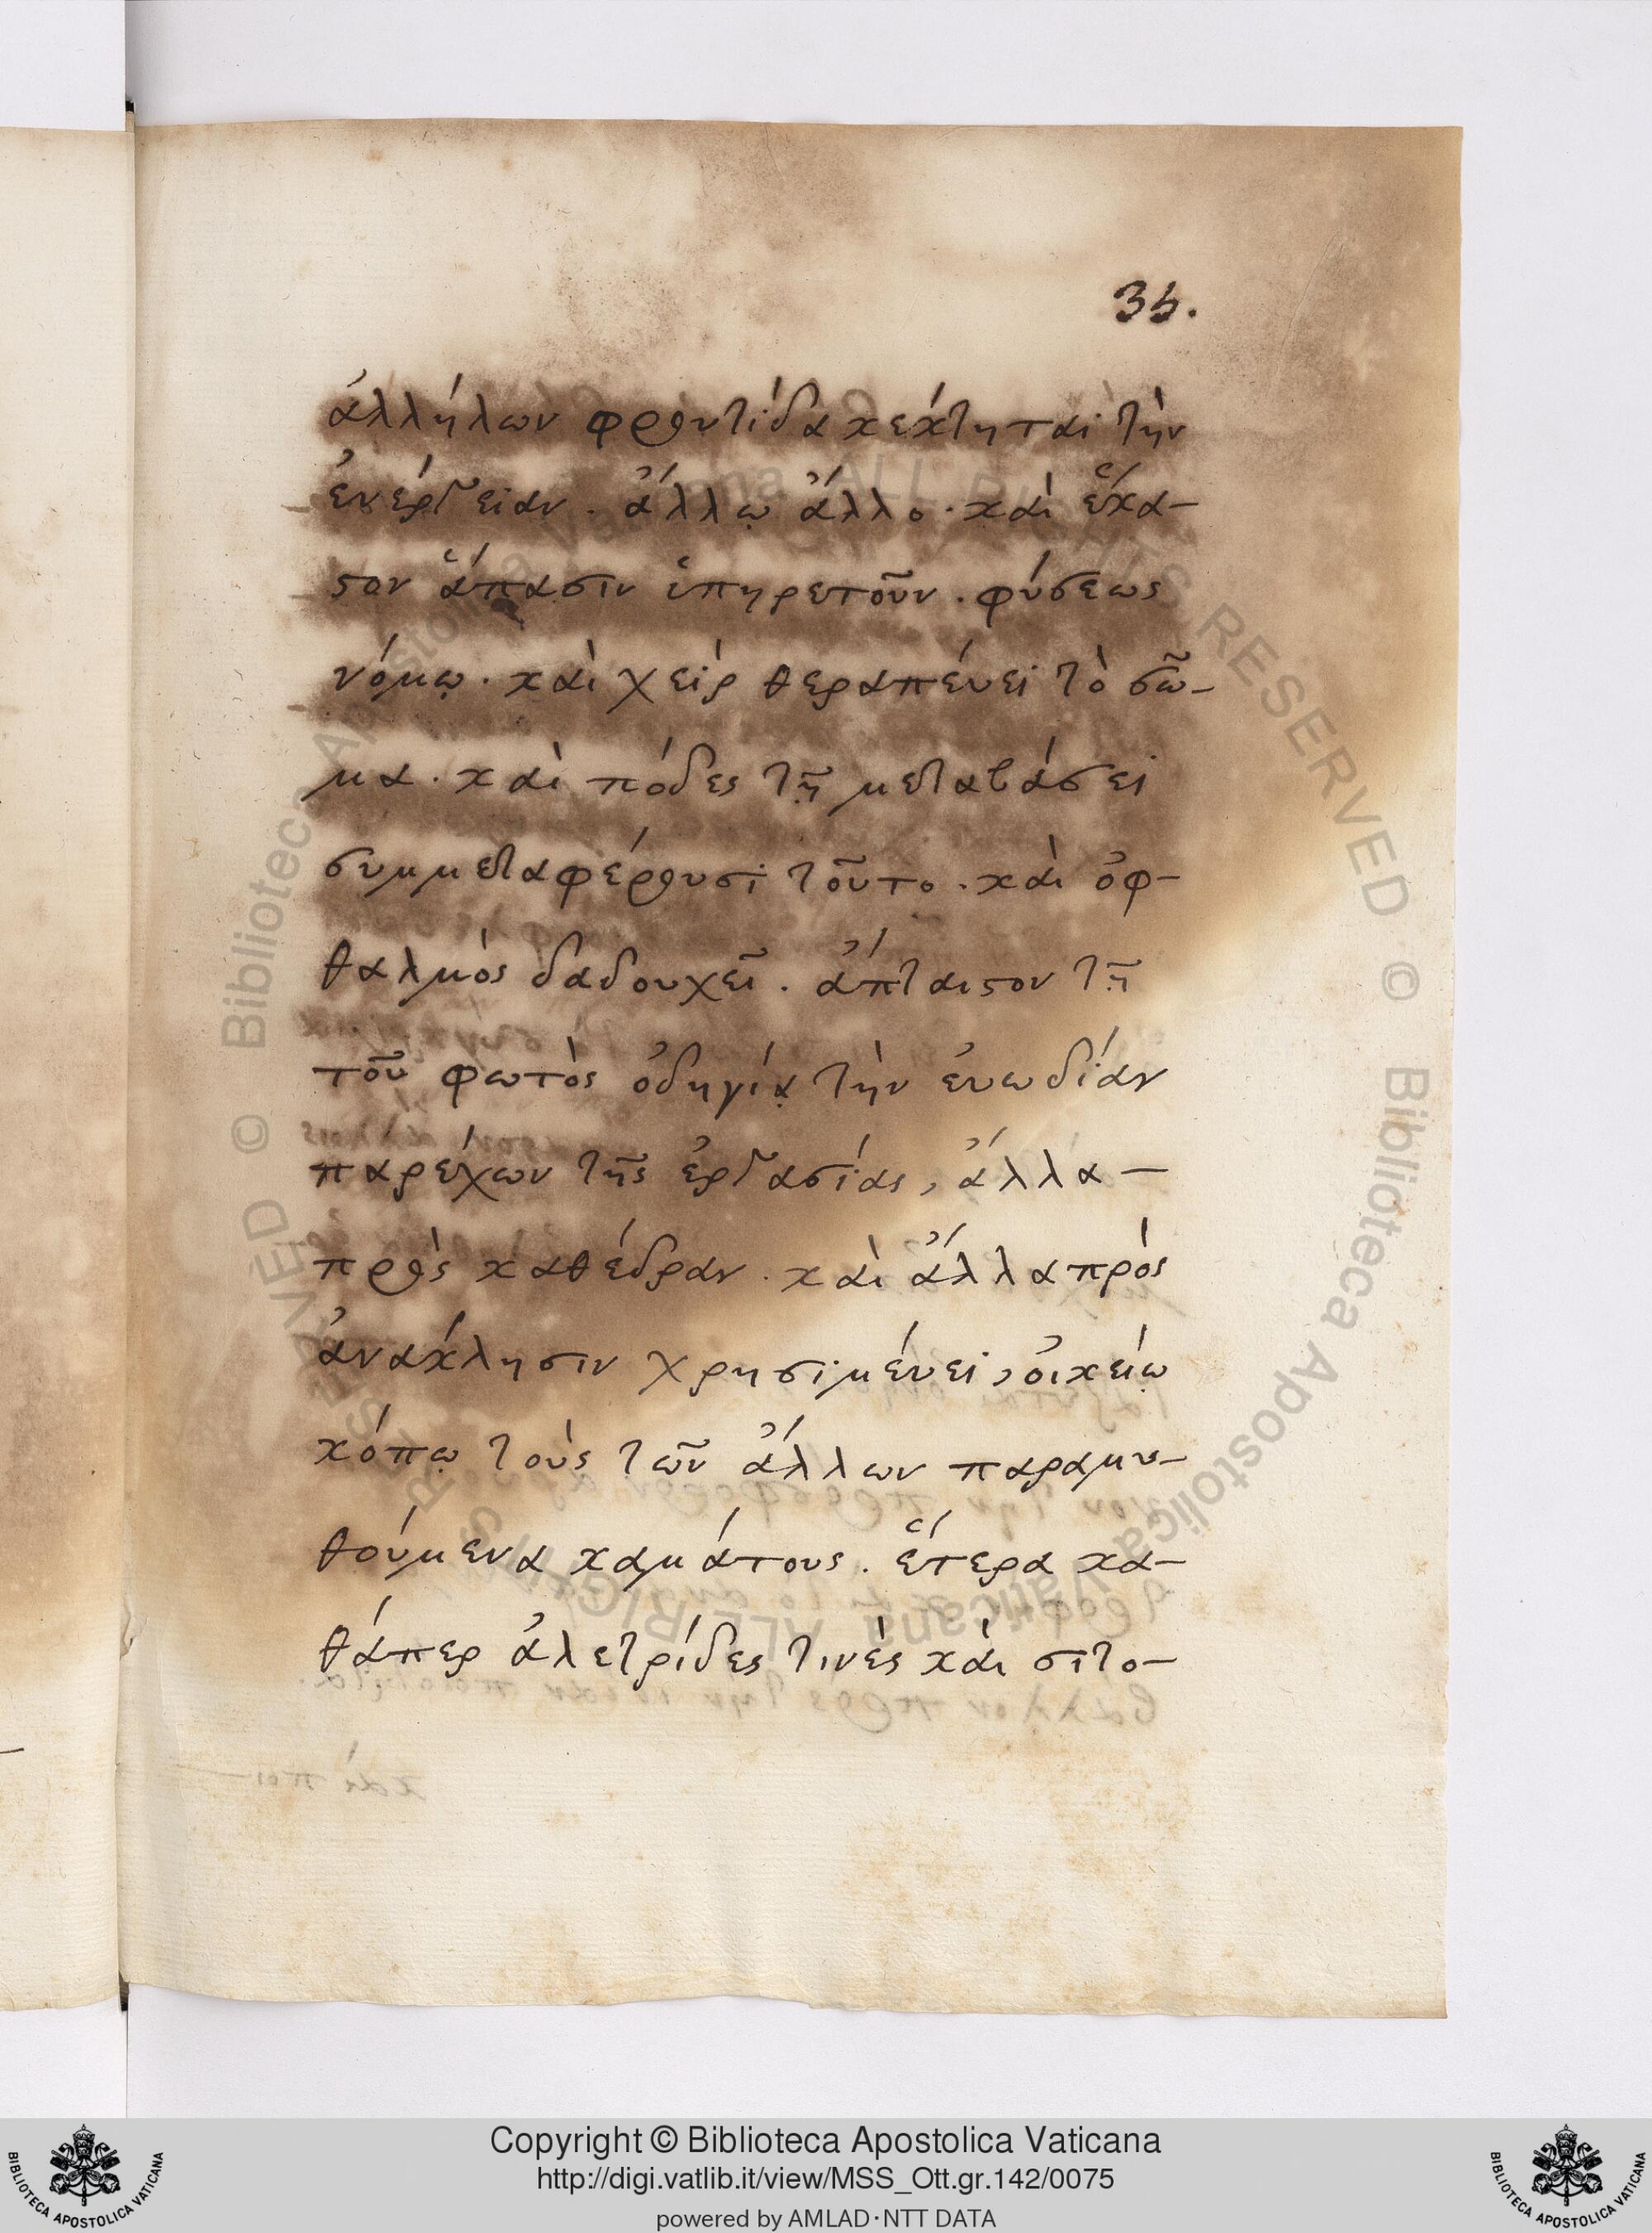 35.
ἀλλήλων φροντίδα κέκτηται τὴν
ἐνέργειαν. ἄλλῳ ἄλλο. καὶ ἕκα-
ϛον ἅπασιν ὑπηρετοῦν. φύσεως
νόμῳ. καὶ χεὶρ θεραπέυει τὸ σῶ-
μα. καὶ πόδες τῇ μεταβάσει
συμμεταφέρουσι τοῦτο. καὶ ὀφ-
θαλμὸς δαδουχεῖ. ἄπταιϛον τῇ
τοῦ φωτὸς ὁδηγίᾳ τὴν ἐυωδίαν
παρέχων τῆς ἐργασίας, ἄλλα -
πρὸς καθέδραν. καὶ ἄλλα πρὸς
ἀνάκλησιν χρησιμέυει, ὀικείῳ
κόπῳ τοὺς τῶν ἄλλων παραμυ-
θούμενα καμάτους. ἕτερα κα-
θάπερ ἀλετρίδες τινὲς καὶ σιτο-
© Biblioteca Apostolica Vaticana ALL RIGHTS RESERVED
© Biblioteca Apostolica Vaticana ALL RIGHTS RESERVED
Copyright © Biblioteca Apostolica Vaticana
http://digi.vatlib.it/view/MSS_Ott.gr.142/0075
powered by AMLAD·NTT DATA
BIBLIOTECA APOSTOLICA VATICANA
BIBLIOTECA APOSTOLICA VATICANA